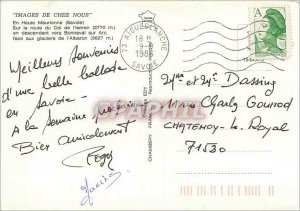 "IMAGES DE CHEZ NOUS"
En Haute Maurienne (Savoie)
Sur la route du Col de l'Iseran (2770 m)
en descendant vers Bonneval sur Arc
face aux glaciers de l'Albaron (3627 m)
73 AIGUEBLANCHE
18 H
1986
SAVOIE
A
Meilleurs Souvenirs
d'une belle ballade
en Savoie.
A la semaine prochaine
Bien amicalement
CHAMBERY
Mme et Mr Dassing
Charly Gounod
CHATENOY-Le Royal
71530